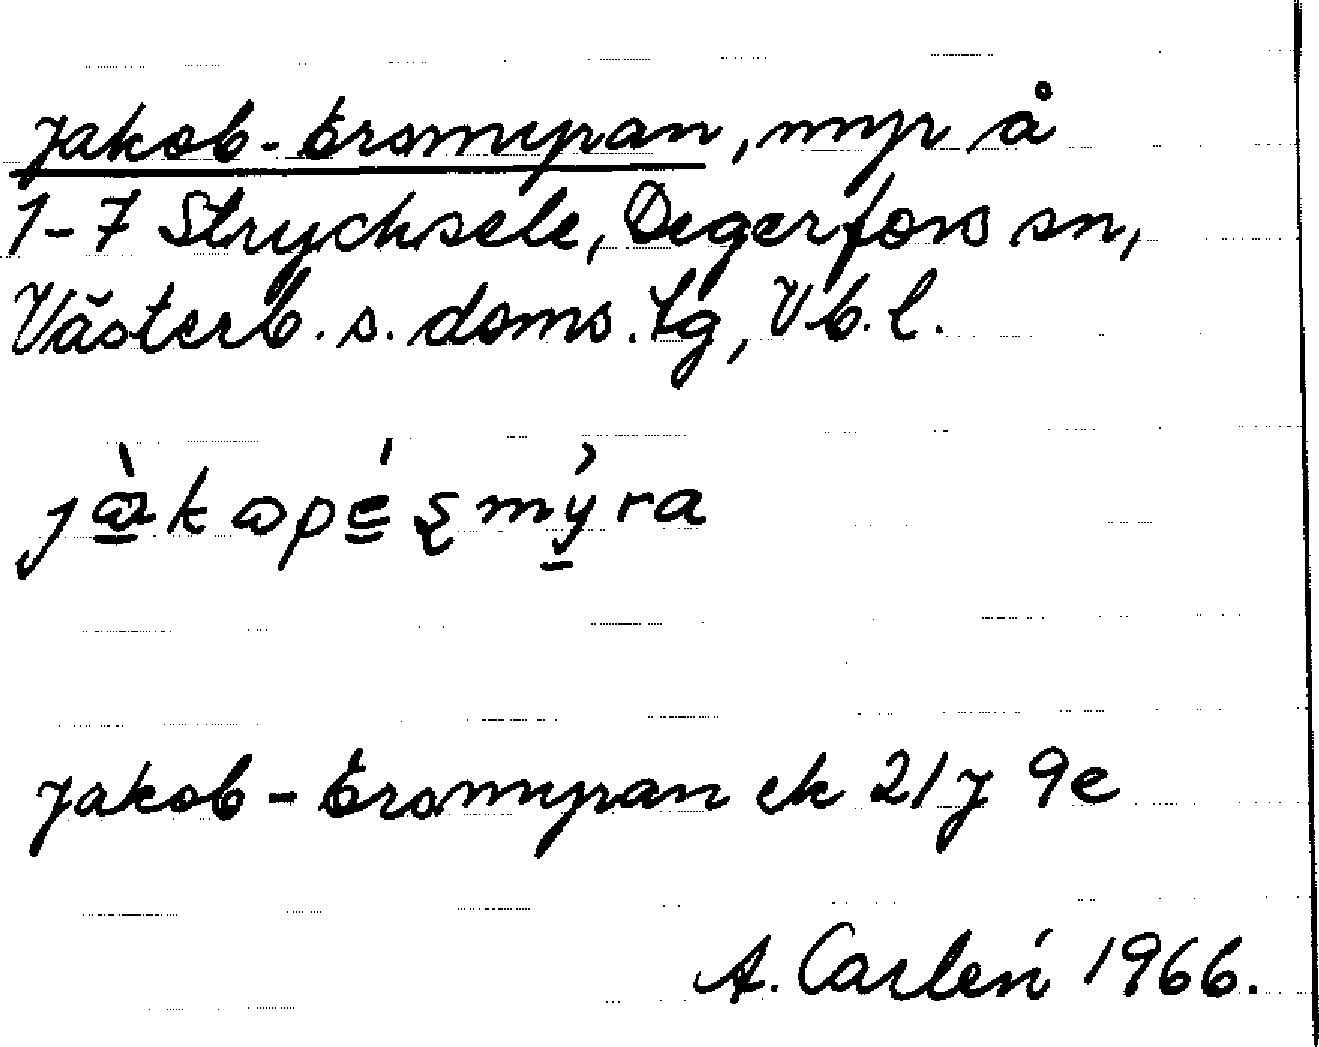 Jakob-Ersmyran, myr å
1-7 Strycksele, Degerfors sn,
Västerb. s. doms. lg, Vb. l.
Jakob-Ersmyran ek 21J 9e
A. Carlén 1966.